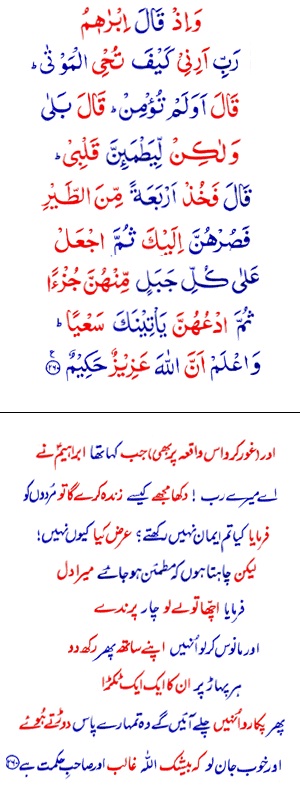 وَاِذْ قَالَ اِبْرٰهٖمُ
رَبِّ اَرِنِیْ کَیْفَ تُحْیِ الْمَوْتٰی ؕ
قَالَ اَوَلَمْ تُؤْمِنْ ؕ قَالَ بَلٰی
وَلٰکِنْ لِّیَطْمَئِنَّ قَلْبِیْ ؕ
قَالَ فَخُذْ اَرْبَعَةً مِّنَ الطَّیْرِ
فَصُرْهُنَّ اِلَیْكَ ثُمَّ اجْعَلْ
عَلٰی کُلِّ جَبَلٍ مِّنْهُنَّ جُزْءًا
ثُمَّ ادْعُهُنَّ یَاْتِیْنَكَ سَعْیًا ؕ
وَاعْلَمْ اَنَّ اللّٰهَ عَزِیْزٌ حَکِیْمٌ ﴿۲۶۰﴾
اور (غور کرو اس واقعہ پر بھی) جب کہا تھا ابراہیمؑ نے
اے میرے رب ! دکھا مجھے کیسے زندہ کرے گا تو مُردوں کو
فرمایا کیا تم ایمان نہیں رکھتے؟ عرض کیا کیوں نہیں!
لیکن چاہتا ہوں کہ مطمئن ہو جائے میرا دل
فرمایا اچّھا تو لے لو چار پرندے
اور مانوس کر لو اُنہیں اپنے ساتھ پھر رکھ دو
ہر پہاڑ پر ان کا ایک ایک ٹکڑا
پھر پکارو اُنہیں چلے آئیں گے وہ تمہارے پاس دوڑتے ہُوئے
اور خوب جان لو کہ بیشک اللہ غالب اور صاحبِ حکمت ہے ﴿۲۶۰﴾